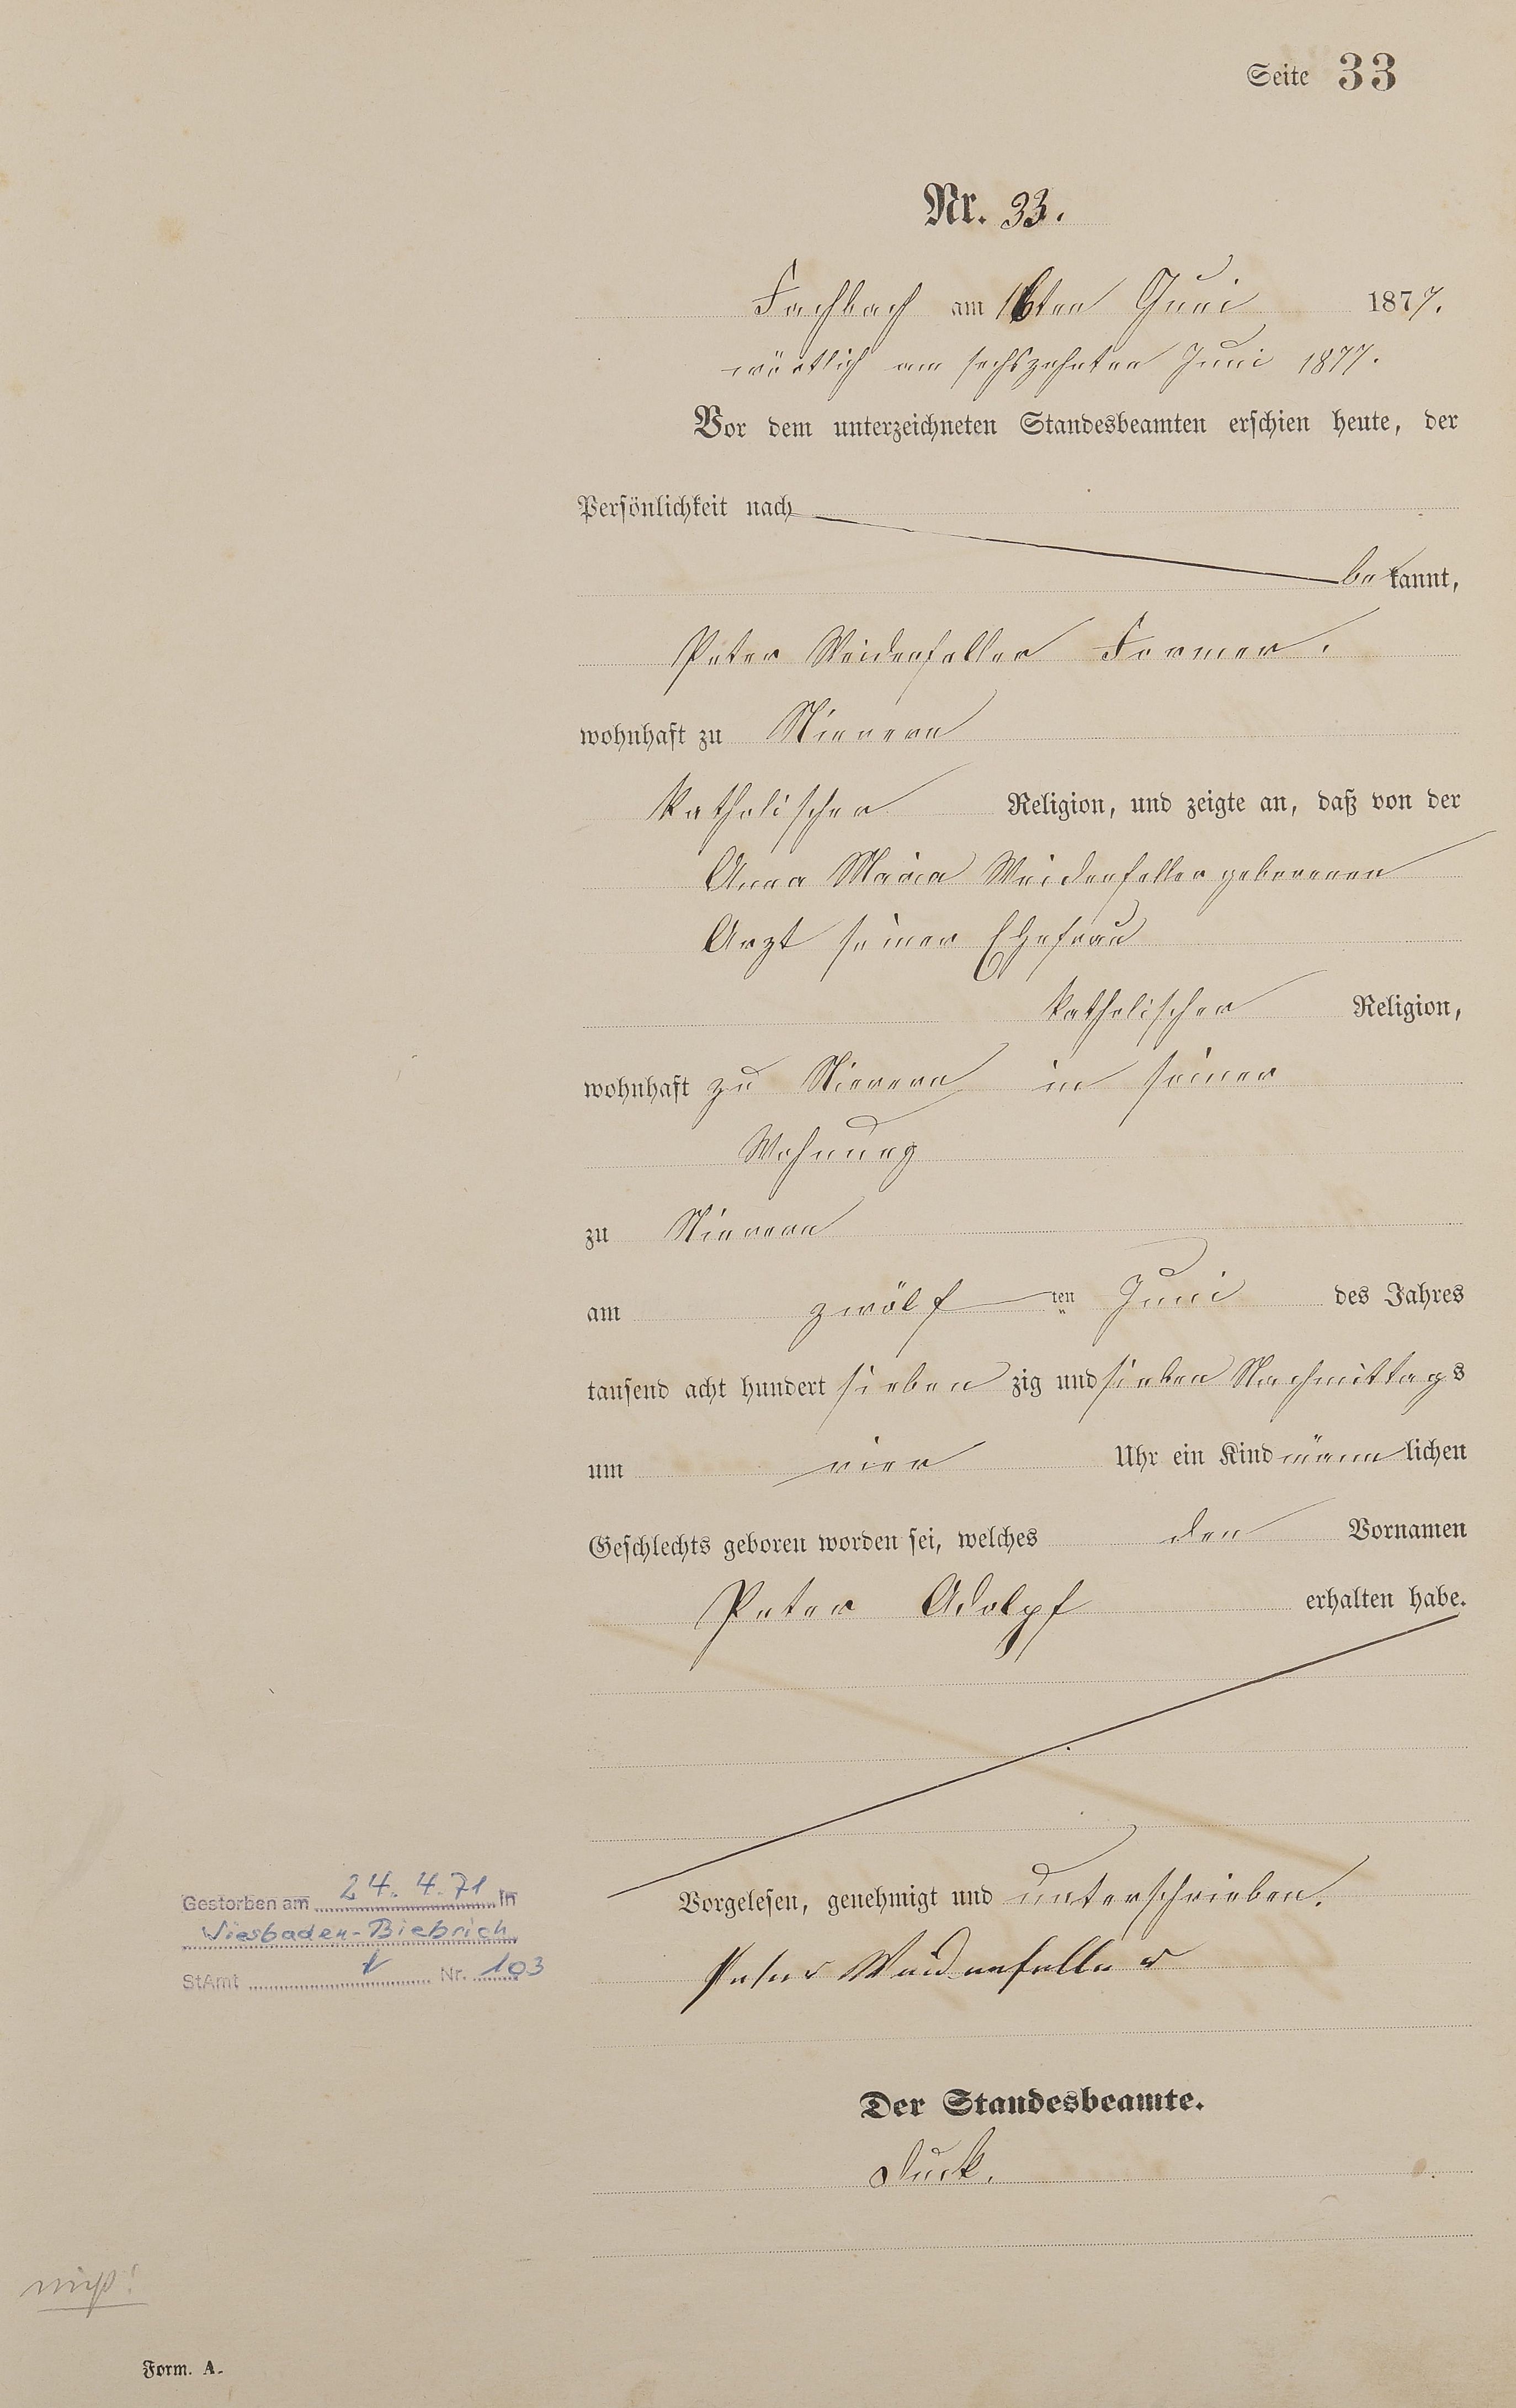 Seite 33
Nr. 33.
Fachbach am 16ten Juni 1877.
wörtlich am sechszehnten Juni 1877.
Vor dem unterzeichneten Standesbeamten erschien heute, der
Persönlichkeit nach
bekannt,
Peter Weidenfeller Former.
wohnhaft zu Nievern
katholischer Religion, und zeigte an, daß von der
Anna Maria Weidenfeller geborenen
Arzt seiner Ehefrau
katholischer Religion,
wohnhaft zu Nievern in seiner
Wohnung
zu Nievern
am zwölf ten Juni des Jahres
tausend acht hundert sieben zig und sieben Nachmittags
um vier Uhr ein Kind männlichen
Geschlechts geboren worden sei, welches den Vornamen
Peter Adolpf erhalten habe.
Vorgelesen, genehmigt und unterschrieben.
Peter Weidenfeller
Gestorben am 24.4.71 in
Wiesbaden-Biebrich
StAmt Nr. 103
Der Standesbeamte.
Duck.
Form. A.